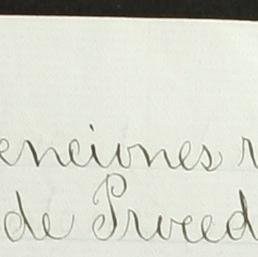 enciones r
de Proced